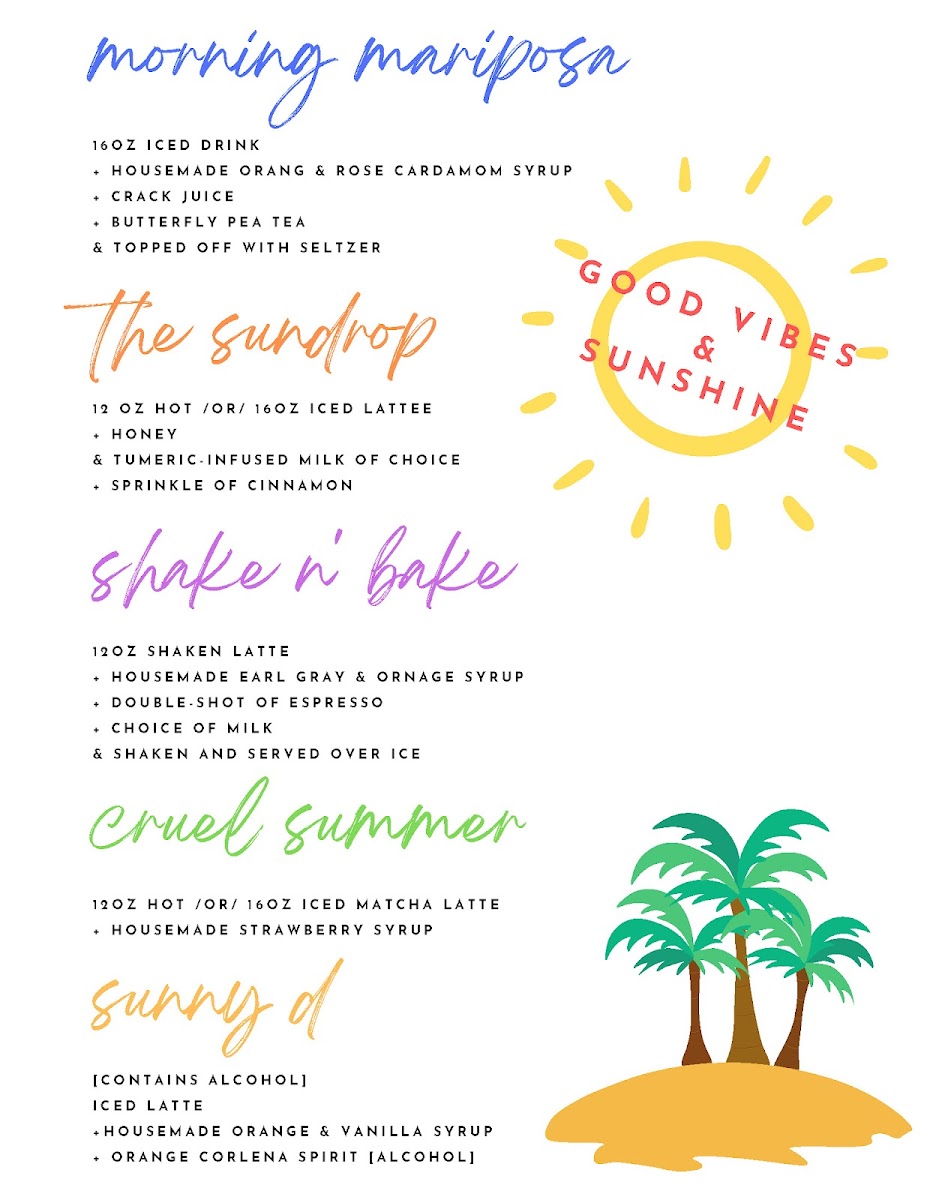 morning mariposa
16OZ ICED DRINK
+ HOUSEMADE ORANG & ROSE CARDAMOM SYRUP
+ CRACK JUICE
+ BUTTERFLY PEA TEA
& TOPPED OFF WITH SELTZER
GOOD VIBES
&
SUNSHINE
the sundrop
12 OZ HOT /OR/ 16OZ ICED LATTEE
+ HONEY
& TUMERIC-INFUSED MILK OF CHOICE
+ SPRINKLE OF CINNAMON
shake n' bake
12OZ SHAKEN LATTE
+ HOUSEMADE EARL GRAY & ORNAGE SYRUP
+ DOUBLE-SHOT OF ESPRESSO
+ CHOICE OF MILK
& SHAKEN AND SERVED OVER ICE
cruel summer
12OZ HOT /OR/ 16OZ ICED MATCHA LATTE
+ HOUSEMADE STRAWBERRY SYRUP
sunny d
[CONTAINS ALCOHOL]
ICED LATTE
+HOUSEMADE ORANGE & VANILLA SYRUP
+ ORANGE CORLENA SPIRIT [ALCOHOL]